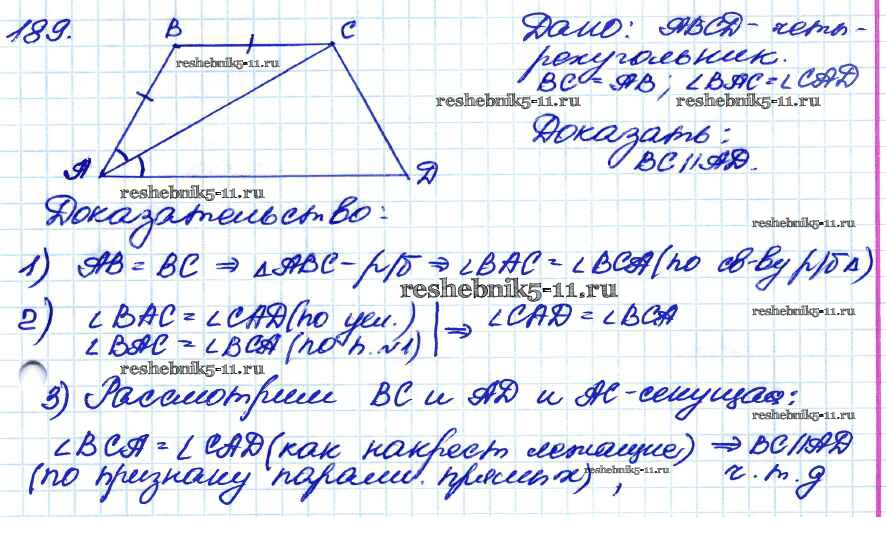 189.
B
C
A
D
Дано: ABCD - четы-
рехугольник.
BC = AB; ∠BAC = ∠CAD
Доказать:
BC || AD.
reshebnik5-11.ru
reshebnik5-11.ru
reshebnik5-11.ru
reshebnik5-11.ru
Доказательство:
reshebnik5-11.ru
1) AB = BC ⇒ △ABC - р/б ⇒ ∠BAC = ∠BCA (по св-ву р/б △)
reshebnik5-11.ru
2) ∠BAC = ∠CAD (по усл.) | ⇒ ∠CAD = ∠BCA
∠BAC = ∠BCA (по п. №1)
reshebnik5-11.ru
reshebnik5-11.ru
3) Рассмотрим BC и AD и AC - секущая:
reshebnik5-11.ru
∠BCA = ∠CAD (как накрест лежащие) ⇒ BC || AD
(по признаку паралл. прямых), ч. т. д
reshebnik5-11.ru